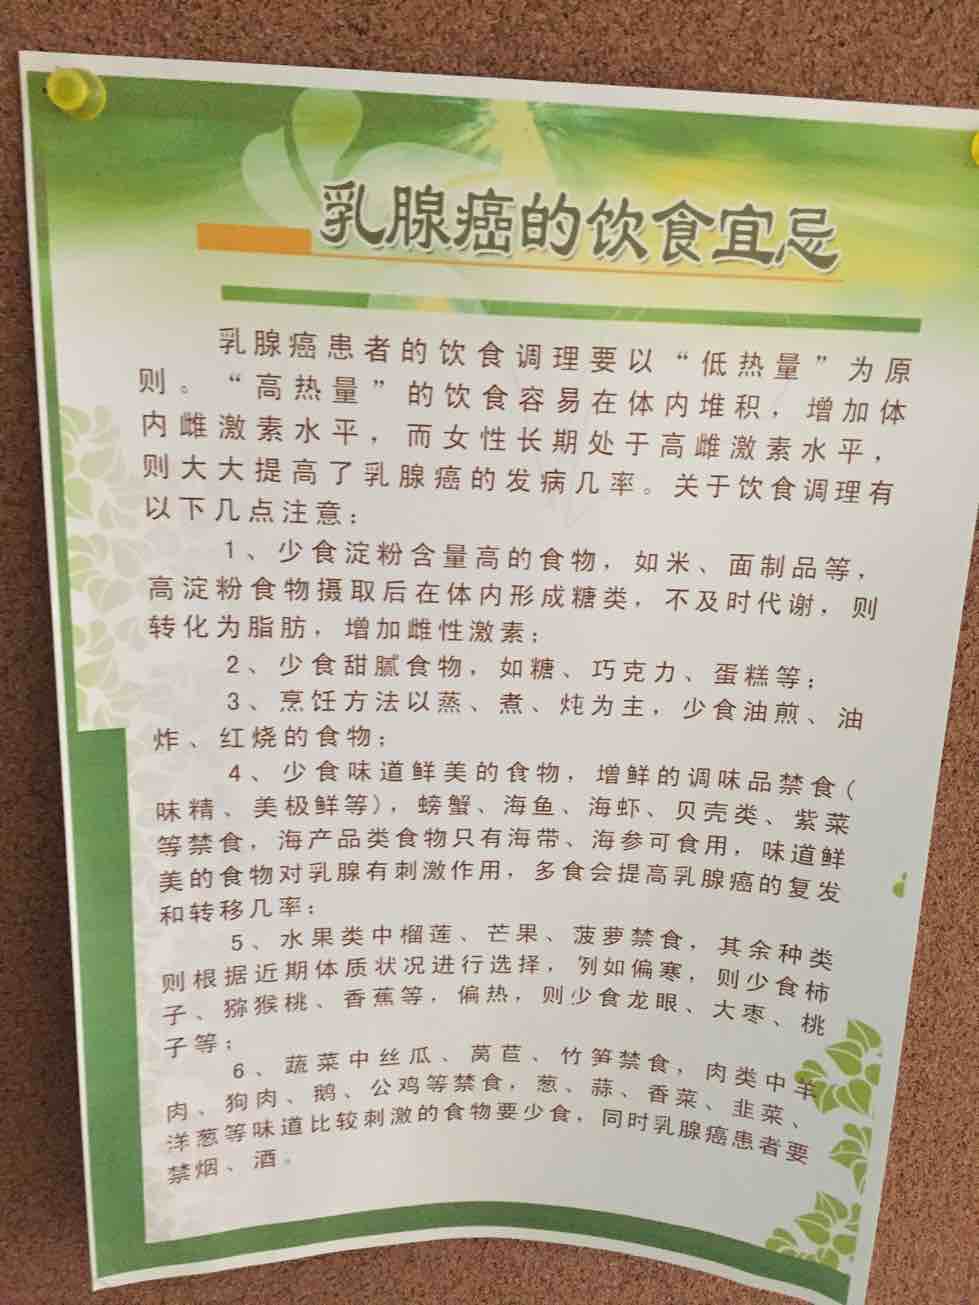 乳腺癌的饮食宜忌
乳腺癌患者的饮食调理要以“低热量”为原
则。“高热量”的饮食容易在体内堆积，增加体
内雌激素水平，而女性长期处于高雌激素水平，
则大大提高了乳腺癌的发病几率。关于饮食调理有
以下几点注意：
1、少食淀粉含量高的食物，如米、面制品等，
高淀粉食物摄取后在体内形成糖类，不及时代谢，则
转化为脂肪，增加雌性激素；
2、少食甜腻食物，如糖、巧克力、蛋糕等；
3、烹饪方法以蒸、煮、炖为主，少食油煎、油
炸、红烧的食物；
4、少食味道鲜美的食物，增鲜的调味品禁食（
味精、美极鲜等），螃蟹、海鱼、海虾、贝壳类、紫菜
等禁食，海产品类食物只有海带、海参可食用，味道鲜
美的食物对乳腺有刺激作用，多食会提高乳腺癌的复发
和转移几率；
5、水果类中榴莲、芒果、菠萝禁食，其余种类
则根据近期体质状况进行选择，例如偏寒，则少食柿
子、猕猴桃、香蕉等，偏热，则少食龙眼、大枣、桃
子等；
6、蔬菜中丝瓜、莴苣、竹笋禁食，肉类中羊
肉、狗肉、鹅、公鸡等禁食，葱、蒜、香菜、韭菜、
洋葱等味道比较刺激的食物要少食，同时乳腺癌患者要
禁烟、酒。